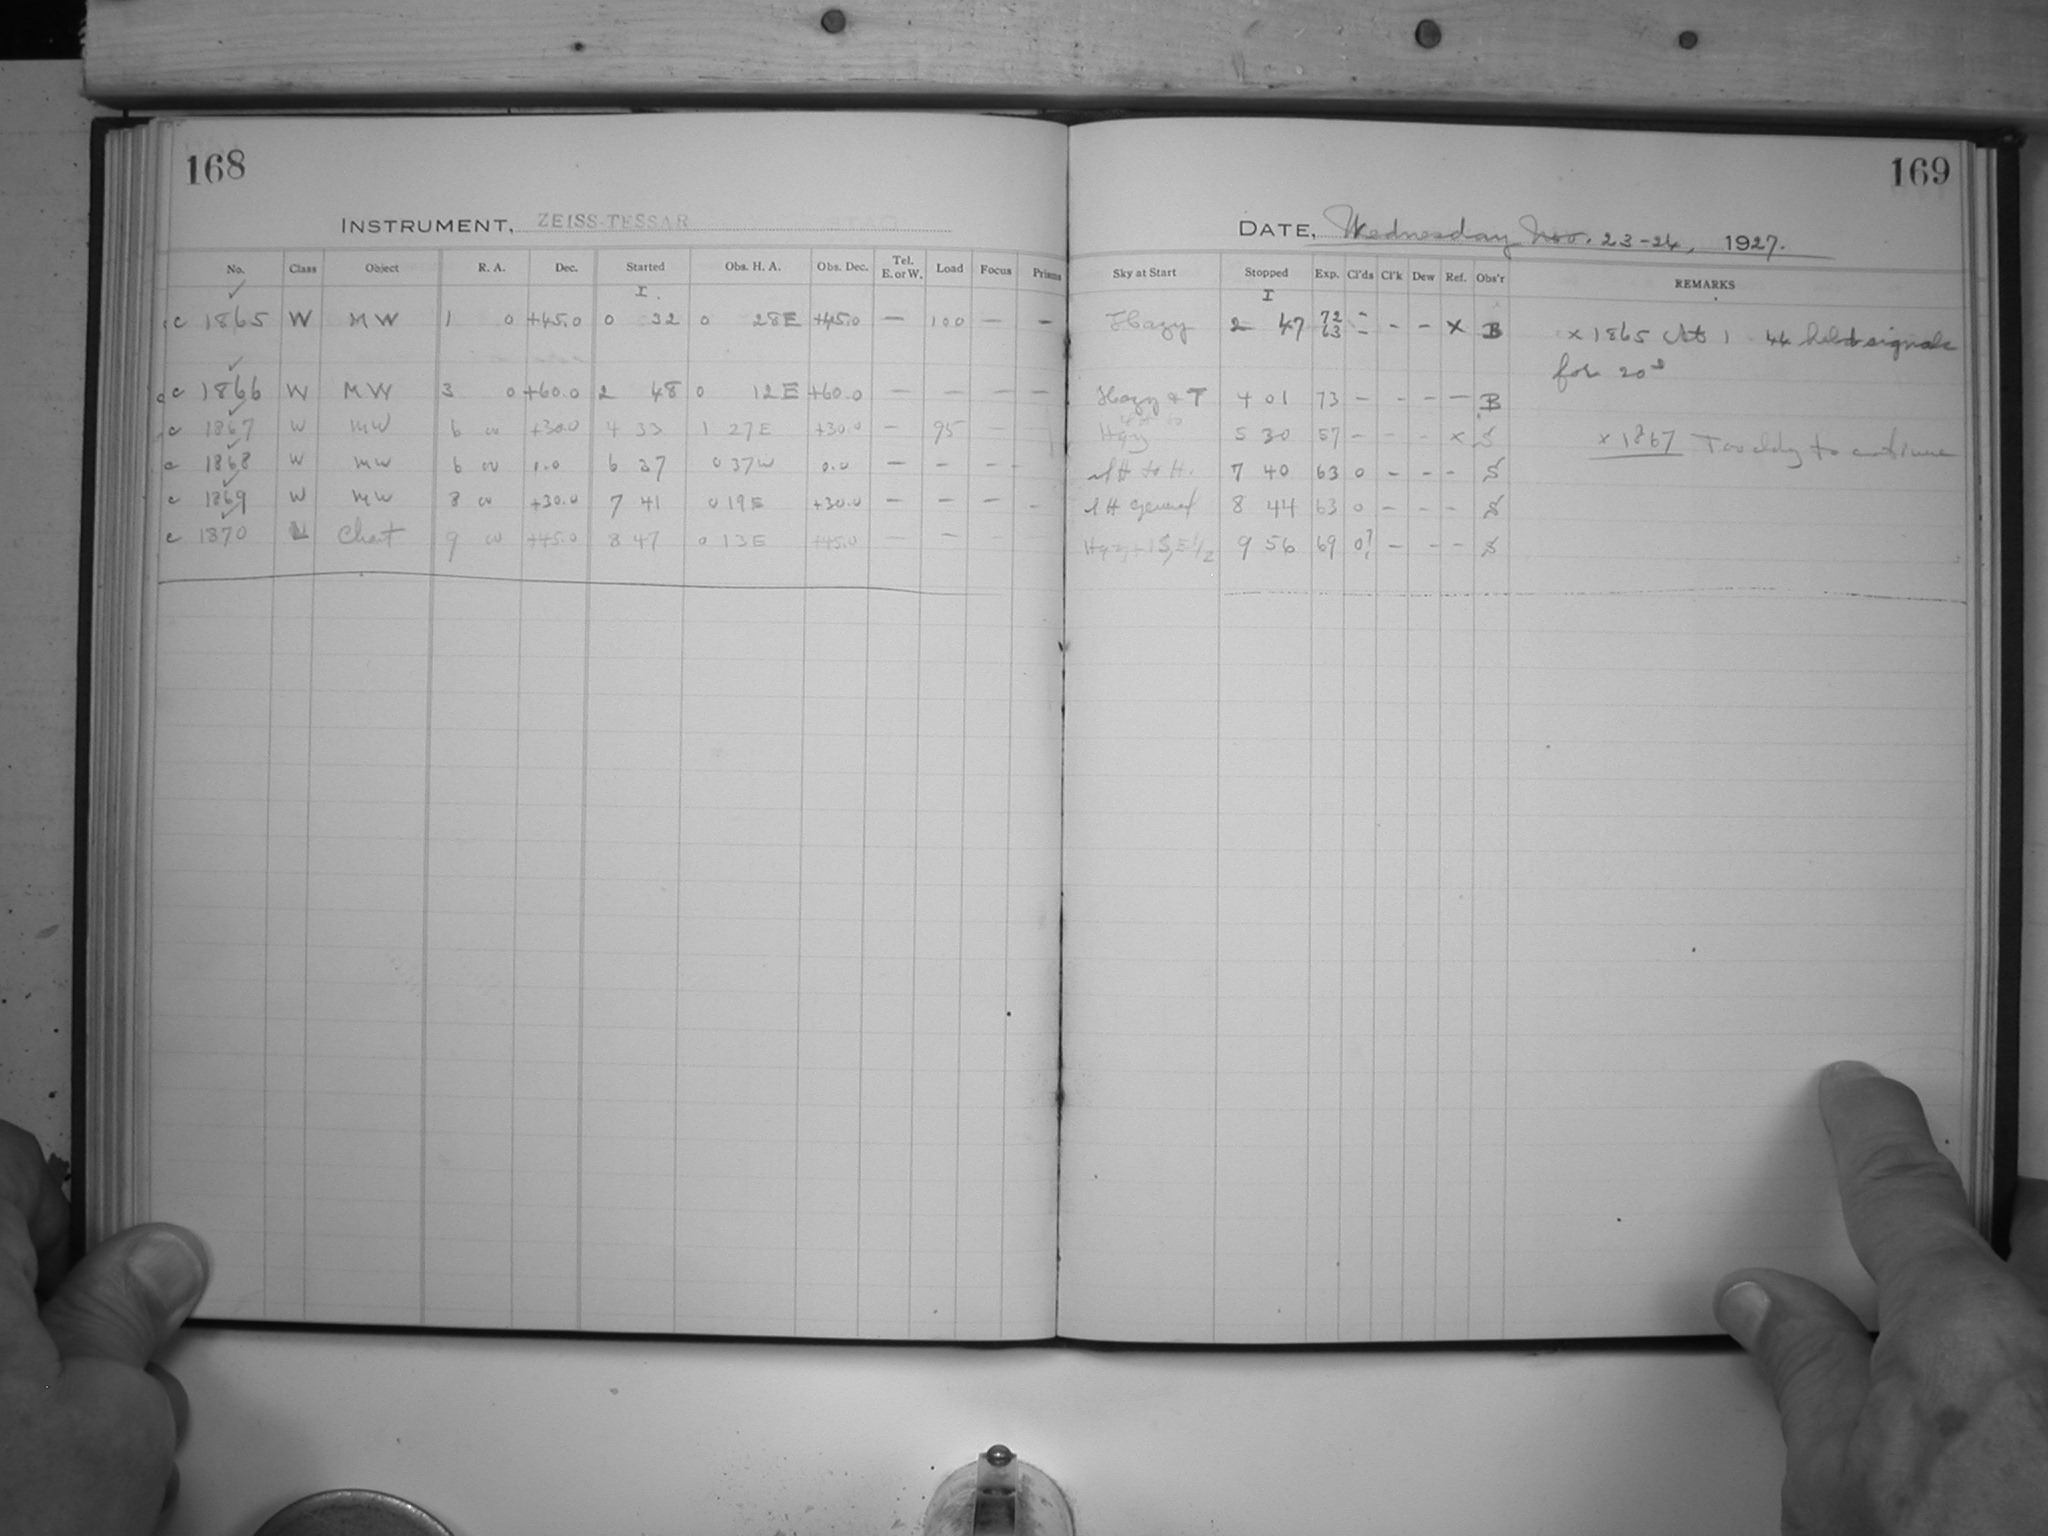 168
169
INSTRUMENT, ZEISS-TESSAR
DATE, Wednesday Nov. 23-24, 1927.
No. Class Object R. A. Dec. Started Obs. H. A. Obs. Dec. Tel. E. or W. Load Focus Prisms Sky at Start Stopped Exp. Cl'ds Cl'k Dew Ref. Obs'r REMARKS
I. I
c 1865 W MW 1 0 +45.0 0 32 0 28E +45.0 — 100 — — Hazy 2 47 72 63 - - - - x B x 1865 At 1 44 held signals
for 20s
c 1866 W MW 3 0 +60.0 2 48 0 12E +60.0 — — — — Hazy + T 4 01 73 - - - — B
c 1867 W MW 6 00 +30.0 4 33 1 27E +30.0 — 95 — Hazy 5 30 57 - - - x S x 1867 Too to continue
c 1868 W MW 6 00 0.0 6 37 0 37W 0.0 — — — - H to H. 7 40 63 0 - - - S
c 1869 W MW 8 00 +30.0 7 41 0 19E +30.0 — — — - H general 8 44 63 0 - - - S
c 1870 L Chart 9 00 +45.0 8 47 0 13E +45.0 — — 9 56 69 0? - - - S